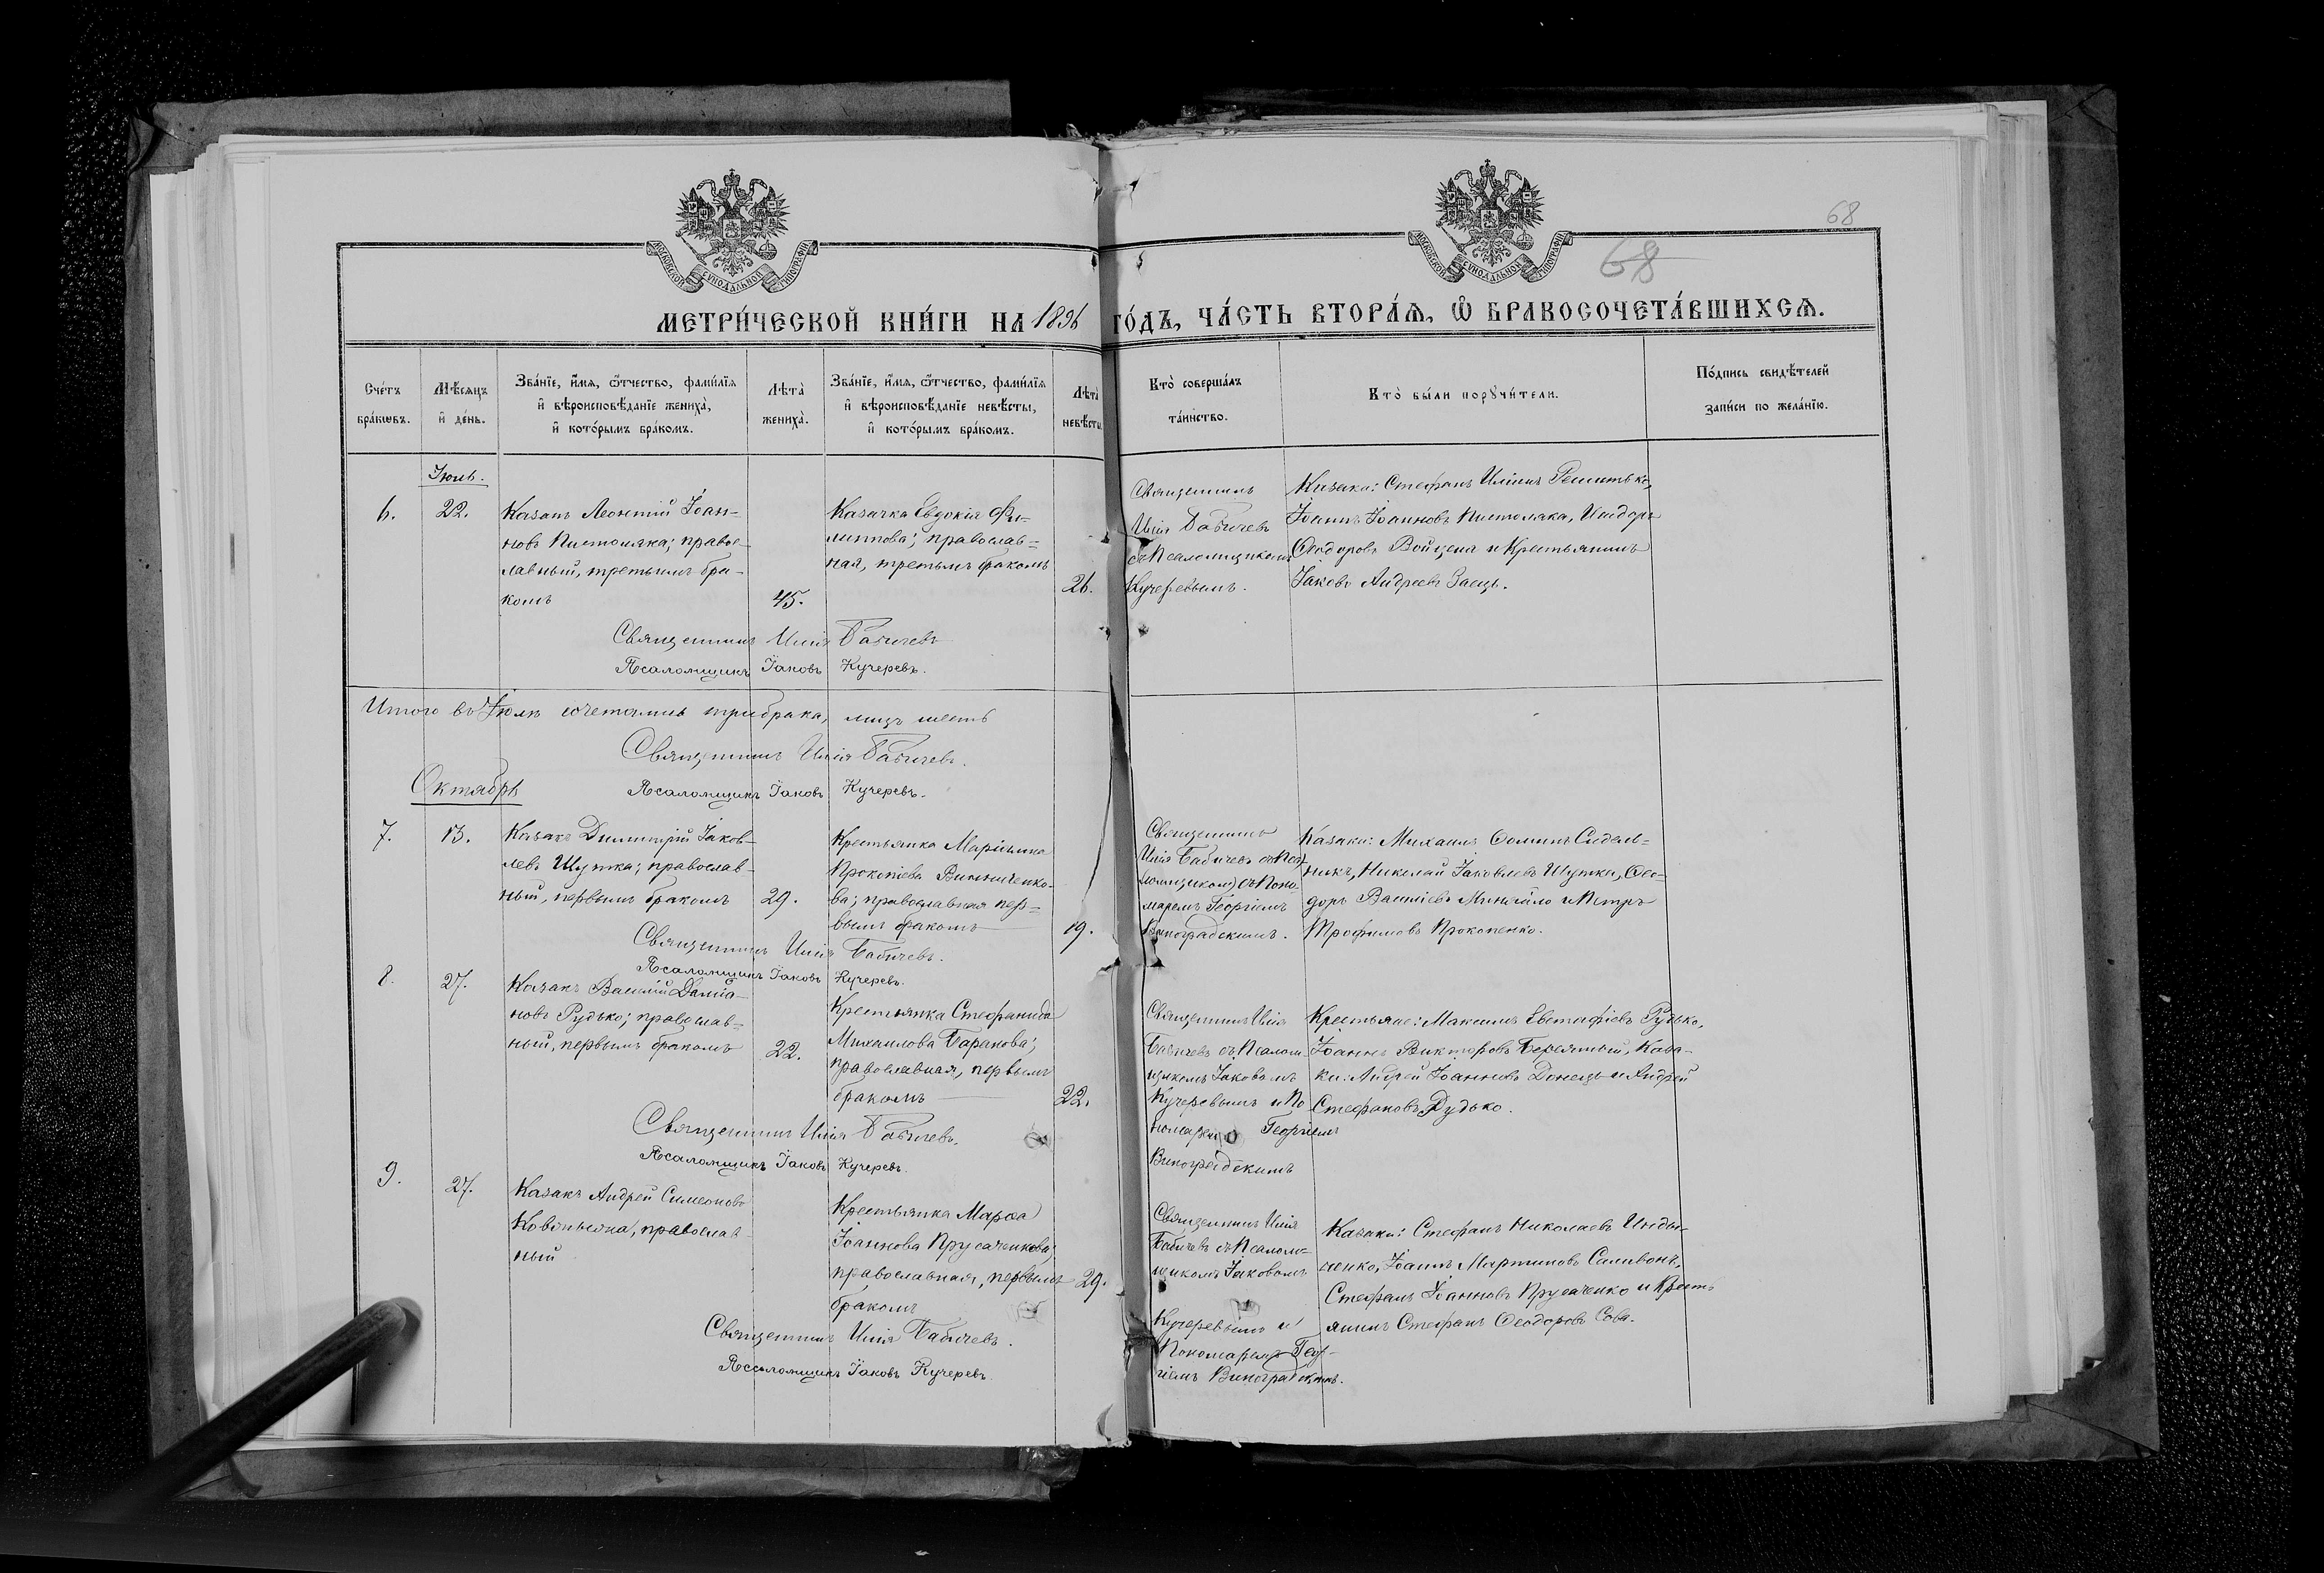 68
68
МОСКОВСКОЙ СѴНОДАЛЬНОЙ ТИПОГРАФІИ
МОСКОВСКОЙ СѴНОДАЛЬНОЙ ТИПОГРАФІИ
МЕТРИ́ЧЕСКОЙ КНИ́ГИ НА 1896 ГО́ДЪ, ЧА́СТЬ ВТОРА́Ѧ, Ѽ БРАКОСОЧЕТА́ВШИХСѦ.
Сче́тъ
бра́кѡвъ.
Мѣ́сѧцъ
и҆ де́нь.
Зва́нїе, и҆́мѧ, ѻ҆́тчество, фами́лїѧ
и҆ вѣроисповѣ́данїе жениха̀,
и҆ кото́рымъ бра́комъ.
Лѣ́та̀
жениха̀.
Зва́нїе, и҆́мѧ, ѻ҆́тчество, фами́лїѧ
и҆ вѣроисповѣ́данїе невѣ́сты,
и҆ кото́рымъ бра́комъ.
Лѣ́та̀
невѣ́сты.
Кто̀ соверша́лъ
та́инство.
Кто̀ бы́ли порꙋчи́тели.
По́дпись свидѣ́телей
за́писи по жела́нїю.
6.
22.
Казакъ Леонтій Іоан-
новъ Пистоляка; правос-
лавный, третьимъ бра-
комъ
45.
Казачка Евдокія Фи-
липпова; православ=
ная, третьимъ бракомъ
26.
Священникъ
Илія Бабичевъ
съ Псаломщикомъ
Кучеревымъ.
Казаки: Стефанъ Иліинъ
Іоаннъ Іоанновъ Пистоляка, Исидоръ
Ѳеодоровъ Войцеха и Крестьянинъ
Іаковъ Андреевъ Заецъ.
Священникъ Илія Бабичевъ
Псаломщикъ Іаковъ Кучеревъ.
Итого въ сочетались три брака, лицъ шесть
Священникъ Илія Бабичевъ.
Октябрь
Псаломщикъ Іаковъ Кучеревъ.
7.
13.
Казакъ Димитрій Іаков-
левъ Шупка; православ-
ный, первымъ бракомъ
29.
Крестьянка
Прокопіева Винниченко-
ва; православная пер=
вымъ бракомъ
19.
Священникъ
Илія Бабичевъ съ
Поно-
маремъ Георгіемъ
Виноградскимъ.
Казаки: Михаилъ Ѳоминъ Сидель=
никъ, Николай Іаковлевъ Шупка, Ѳео-
доръ Василіевъ и Петръ
Трофимовъ Прокопенко.
Священникъ Илія Бабичевъ.
Псаломщикъ Іаковъ Кучеревъ.
8.
27.
Казакъ Василій Даміа-
новъ Рудько; православ=
ный, первымъ бракомъ
22.
Крестьянка Стефанида
Михаилова Баранова;
православная, первымъ
бракомъ
22.
Священникъ Илія
Бабичевъ съ Псалом-
щикомъ Іаковомъ
Кучеревымъ и По
номаремъ Георгіемъ
Виноградскимъ
Крестьяне: Максимъ Евстафіевъ Рудько,
Іоаннъ Викторовъ Каза-
ки: Андрей Іоанновъ Донецъ и Андрей
Стефановъ Рудько.
Священникъ Илія Бабичевъ.
Псаломщикъ Іаковъ Кучеревъ.
9.
27.
Казакъ Андрей Симеоновъ
православ-
ный
Крестьянка Марѳа
Іоаннова Прусаченкова;
православная, первымъ
бракомъ
29.
Священникъ Илія
Бабичевъ съ Псалом=
щикомъ Іаковомъ
Кучеревымъ и
Пономаремъ Геор-
гіемъ Виноградскимъ.
Казаки: Стефанъ Николаевъ Инды-
ченко, Іоаннъ Мартиновъ Саливонъ,
Стефанъ Іоанновъ Прусаченко и Кресть
янинъ Стефанъ Ѳеодоровъ Сова.
Священникъ Илія Бабичевъ.
Псаломщикъ Іаковъ Кучеревъ.